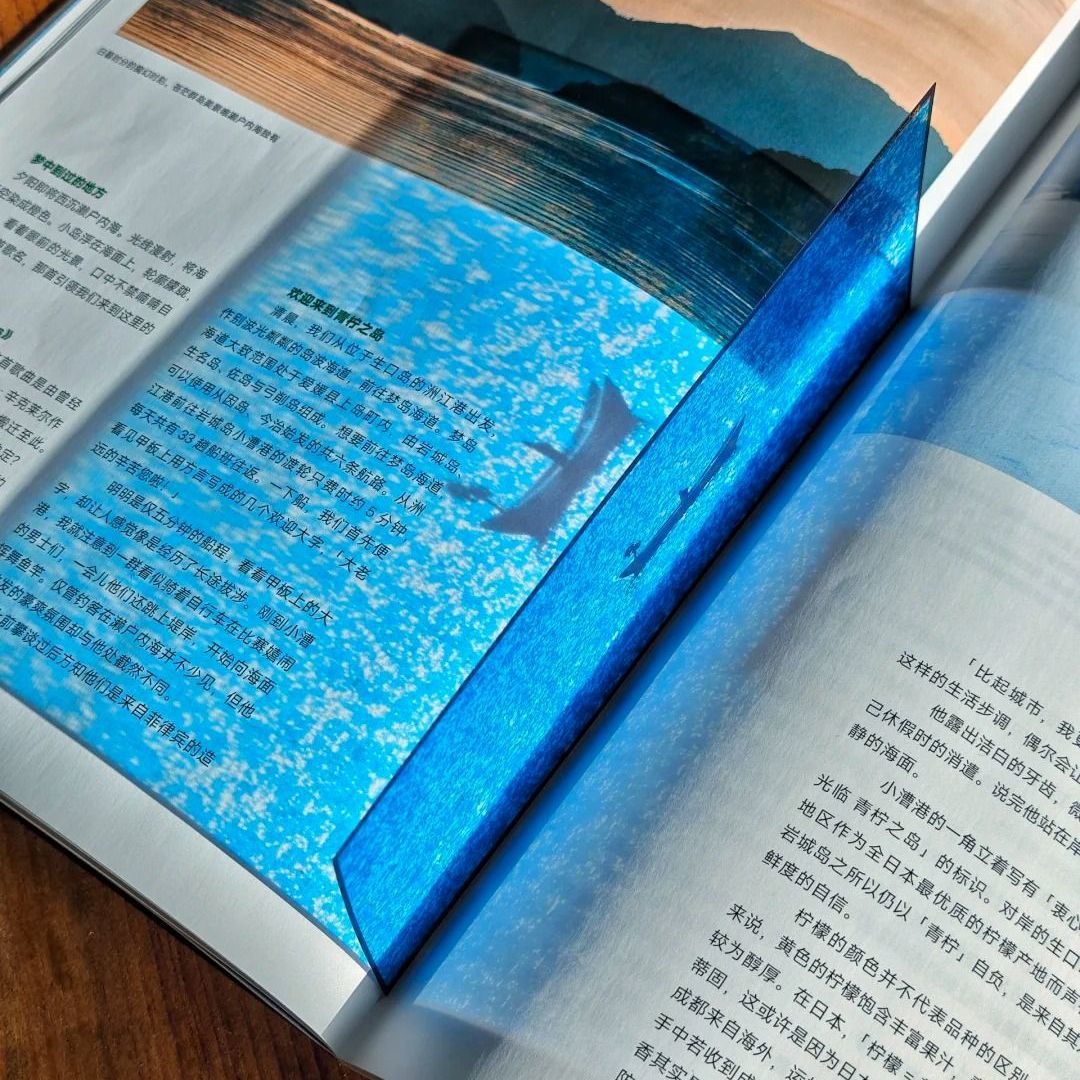 日暮时分的魔幻时刻，苍茫群岛美景唯濑户内海独有
梦中到过的地方
夕阳即将西沉濑户内海。光线漫射，将海
空染成橙色。小岛浮在海面上，轮廓朦胧，
看着眼前的光景，口中不禁喃喃自
首歌名，那首引领我们来到这里的
首歌曲是由曾经
辛克莱尔作
搬迁至此。
定？
的
欢迎来到青柠之岛
清晨，我们从位于生口岛的洲江港出发，
作别波光粼粼的岛波海道，前往梦岛海道。梦岛
海道大致范围处于爱媛县上岛町内，由岩城岛、
生名岛、佐岛与弓削岛组成。想要前往梦岛海道，
可以使用从因岛、今治始发的共六条航路。从洲
江港前往岩城岛小漕港的渡轮只费时约 5 分钟，
每天共有 33 趟船班往返。一下船，我们首先便
看见甲板上用方言写成的几个欢迎大字，「大老
远的辛苦您啦！」
明明是仅五分钟的船程，看着甲板上的大
字，却让人感觉像是经历了长途跋涉。刚到小漕
港，我就注意到一群看似骑着自行车在比赛嬉闹
的男士们，一会儿他们还跳上堤岸，开始向海面
挥舞鱼竿。仅管钓客在濑户内海并不少见，但他
发的豪爽氛围却与他处截然不同。
前攀谈过后方知他们是来自菲律宾的造
「比起城市，我更
这样的生活步调，偶尔会让
他露出洁白的牙齿，微
己休假时的消遣。说完他站在岸
静的海面。
小漕港的一角立着写有「衷心
光临 青柠之岛」的标识。对岸的生口
地区作为全日本最优质的柠檬产地而声
岩城岛之所以仍以「青柠」自负，是来自其
鲜度的自信。
柠檬的颜色并不代表品种的区别
来说，黄色的柠檬饱含丰富果汁，
较为醇厚。在日本，「柠檬
蒂固，这或许是因为日本
成都来自海外，运
手中若收到成
香其实
防